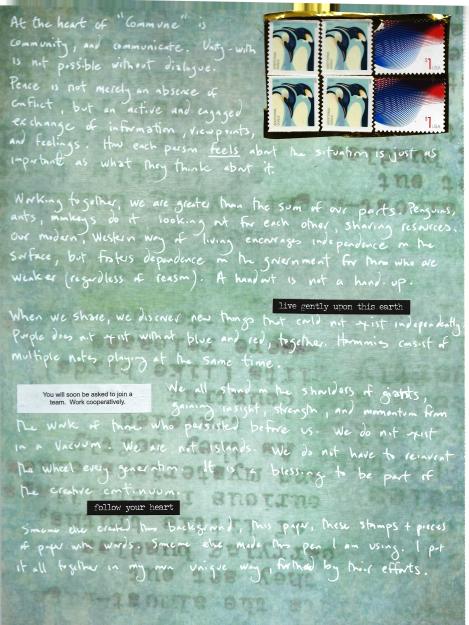 At the heart of "Commune" is
community, and communicate. Unity-with
is not possible without dialogue.
Peace is not merely an absence of
conflict, but an active and engaged
exchange of information, viewpoints,
and feelings. How each person feels about the situation is just as
important as what they think about it.
$1
$1
Working together, we are greater than the sum of our parts. Penguins,
ants, monkeys do it looking out for each other, sharing resources.
Our modern, Western way of living encourages independence on the
surface, but fosters dependence on the government for those who are
weaker (regardless of reason). A handout is not a hand up.
live gently upon this earth
When we share, we discover new things that could not exist independently.
Purple does not exist without blue and red, together. Harmonies consist of
multiple notes playing at the same time.
You will soon be asked to join a
team. Work cooperatively.
We all stand on the shoulders of giants,
gaining insight, strength, and momentum from
the work of those who persisted before us. We do not exist
in a vacuum. We are not islands. We do not have to reinvent
the wheel every generation. It is a blessing to be part of
the creative continuum.
follow your heart
Someone else created this background, this paper, these stamps + pieces
of paper with words. Someone else made this pen I am using. I put
it all together in my own unique way, furthered by their efforts.